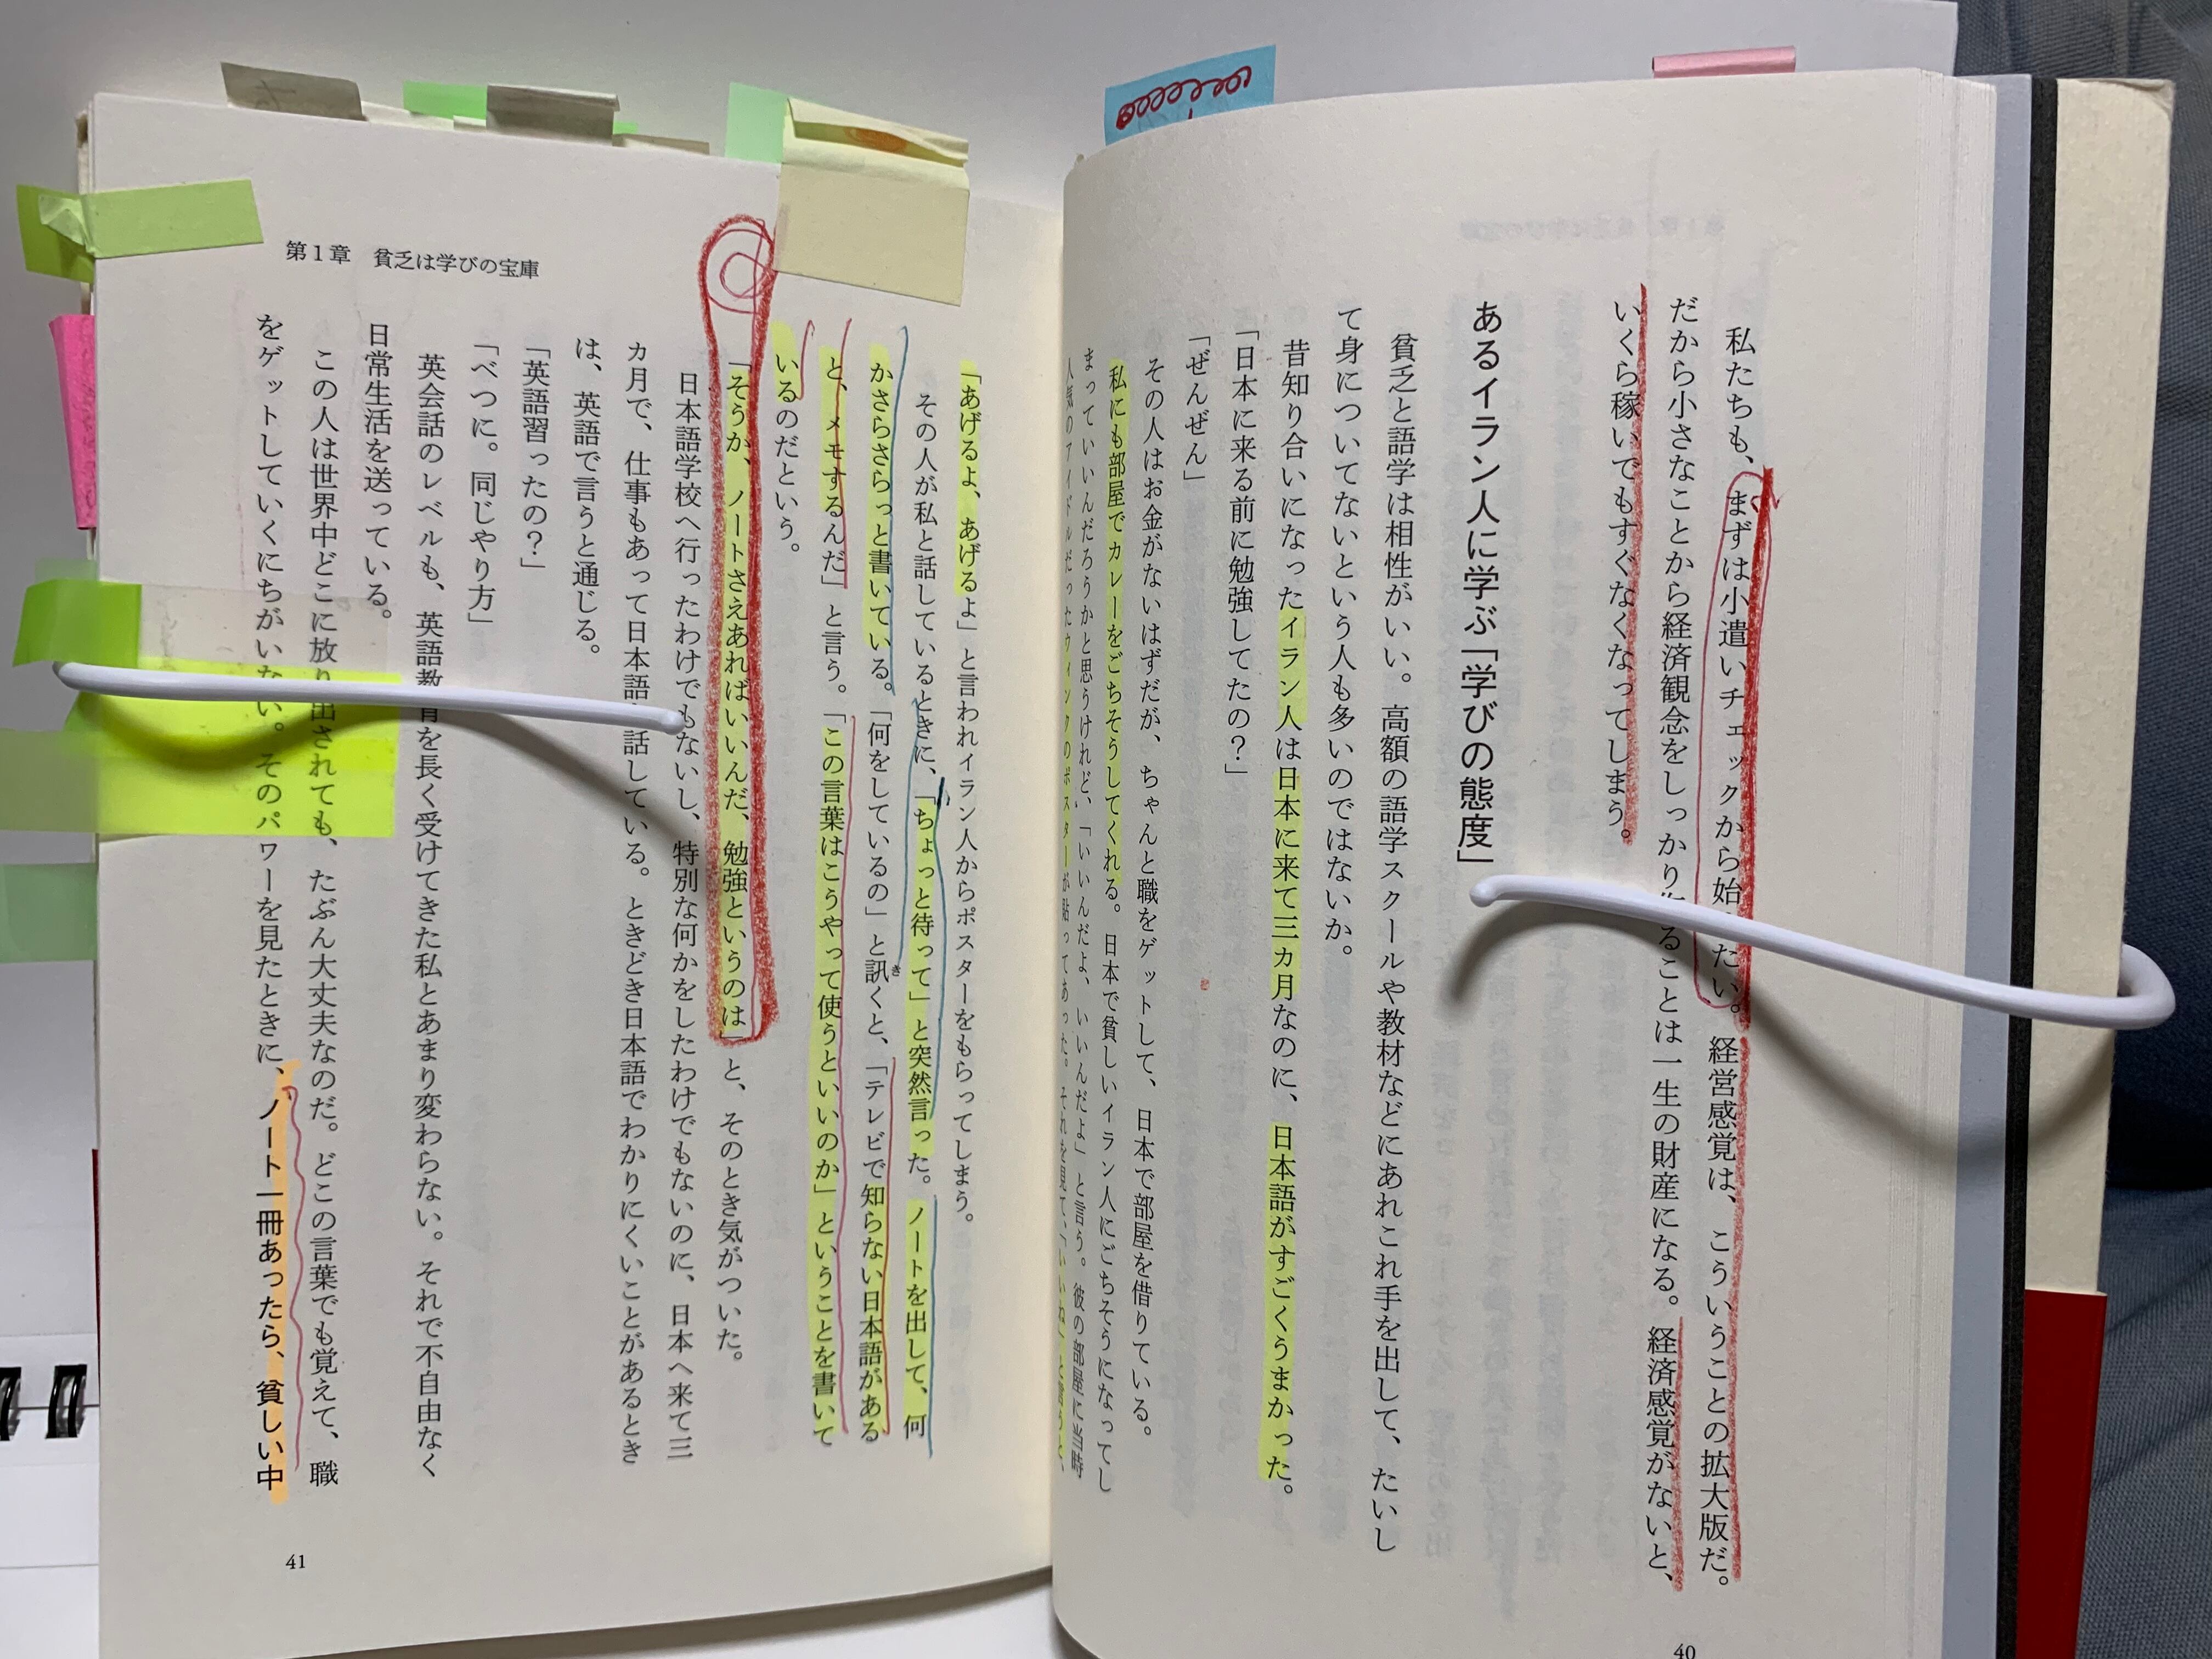 私たちも、まずは小遣いチェックから始たい。経営感覚は、こういうことの拡大版だ。
だから小さなことから経済観念をしっかりることは一生の財産になる。経済感覚がないと、
いくら稼いでもすぐなくなってしまう。
あるイラン人に学ぶ「学びの態度」
貧乏と語学は相性がいい。高額の語学スクールや教材などにあれこれ手を出して、たいし
て身についてないという人も多いのではないか。
昔知り合いになったイラン人は日本に来て三カ月なのに、日本語がすごくうまかった。
「日本に来る前に勉強してたの？」
「ぜんぜん」
その人はお金がないはずだが、ちゃんと職をゲットして、日本で部屋を借りている。
私にも部屋でカレーをごちそうしてくれる。日本で貧しいイラン人にごちそうになってし
まっていいんだろうかと思うけれど、「いいんだよ、いいんだよ」と言う。彼の部屋に当時
人気のアイドルだったウィンクのポスターが貼ってあった。それを見て、「いいね」と言うと、
40
第1章 貧乏は学びの宝庫
「あげるよ、あげるよ」と言われイラン人からポスターをもらってしまう。
その人が私と話しているときに、「ちょっと待って」と突然言った。ノートを出して、何
かさらさらっと書いている。「何をしているの」と訊くと、「テレビで知らない日本語がある
と、メモするんだ」と言う。「この言葉はこうやって使うといいのか」ということを書いて
いるのだという。
「そうか、ノートさえあればいいんだ、勉強というのは」と、そのとき気がついた。
日本語学校へ行ったわけでもないし、特別な何かをしたわけでもないのに、日本へ来て三
カ月で、仕事もあって日本語話している。ときどき日本語でわかりにくいことがあるとき
は、英語で言うと通じる。
「英語習ったの？」
「べつに。同じやり方」
英会話のレベルも、英語教育を長く受けてきた私とあまり変わらない。それで不自由なく
日常生活を送っている。
この人は世界中どこに放り出されても、たぶん大丈夫なのだ。どこの言葉でも覚えて、職
をゲットしていくにちがいない。そのパワーを見たときに、ノート一冊あったら、貧しい中
41